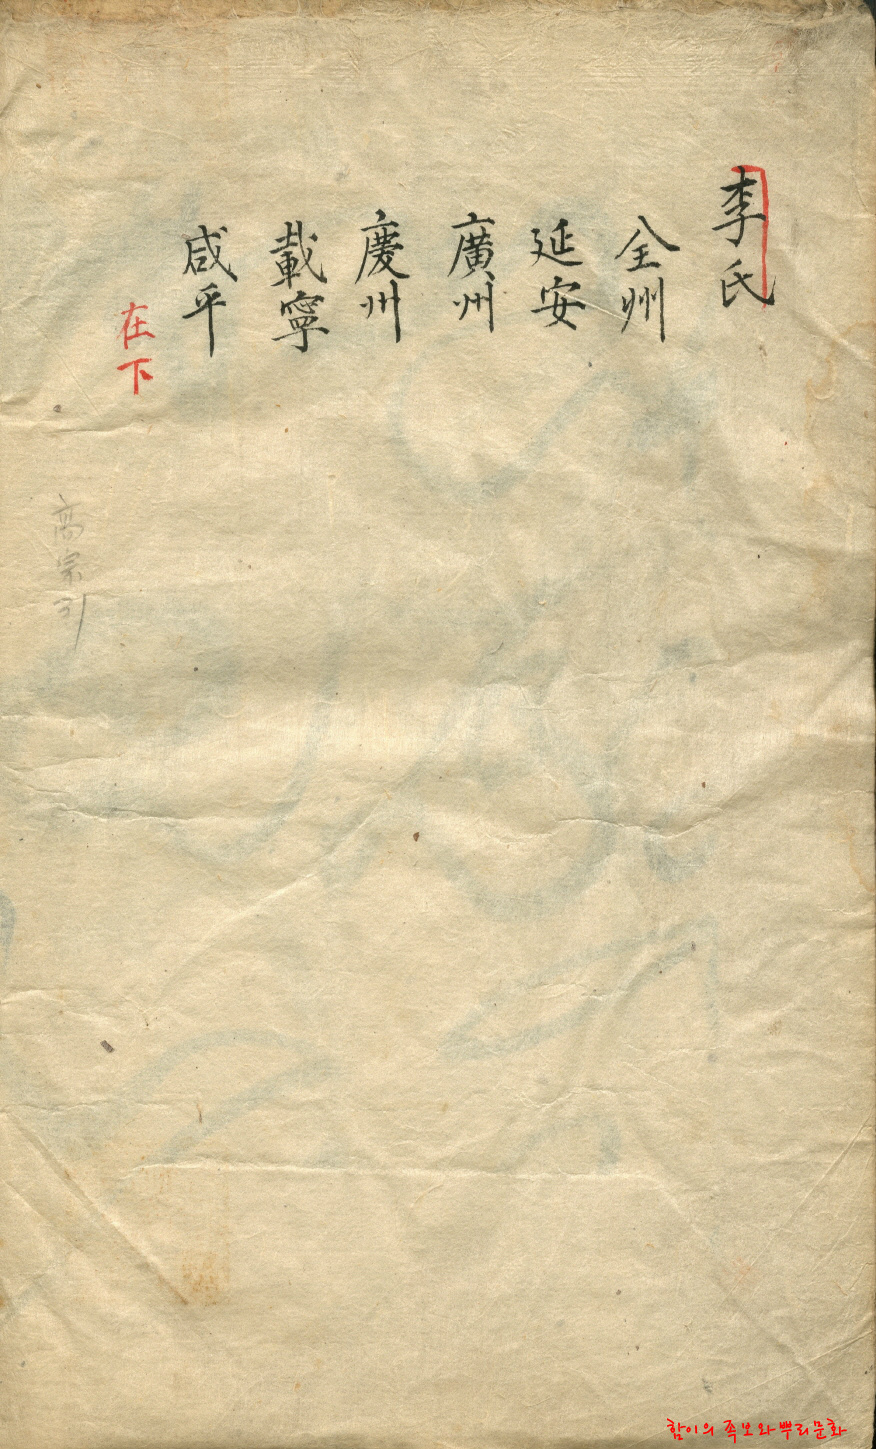 李氏
全州
延安
廣州
慶州
載寧
咸平
在下
高宗
함이의 족보와 뿌리문화